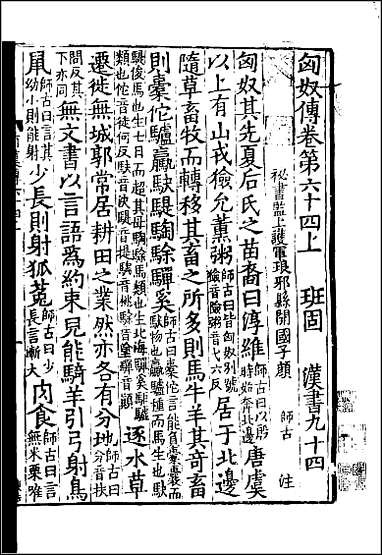 匈奴傳卷第六十四上 班固 漢書九十四
秘書監上護軍琅邪縣開國子顏 師古 注
匈奴其先夏后氏之苗裔曰淳維師古曰以殷時始奔北邊唐虞
以上有山戎獫允薰粥師古曰皆匈奴別號獫音險粥音弋六反居于北邊
隨草畜牧而轉移其畜之所多則馬牛羊其奇畜
則橐佗驢驘駃騠騊駼驒奚師古曰橐佗言能負橐囊而駄物也驘驢種而馬生也駃
騠俊馬也生七日而超其母騊駼馬類也生北海驒奚駏驢
類也佗音徒何反駃音決騠音提騊音桃駼音塗驒音顛逐水草
遷徙無城郭常居耕田之業然亦各有分地師古曰分音扶
問反其下亦同無文書以言語為約束兒能騎羊引弓射鳥
鼠師古曰言其幼小則能射少長則射狐菟師古曰少長言漸大肉食師古曰言無米粟唯